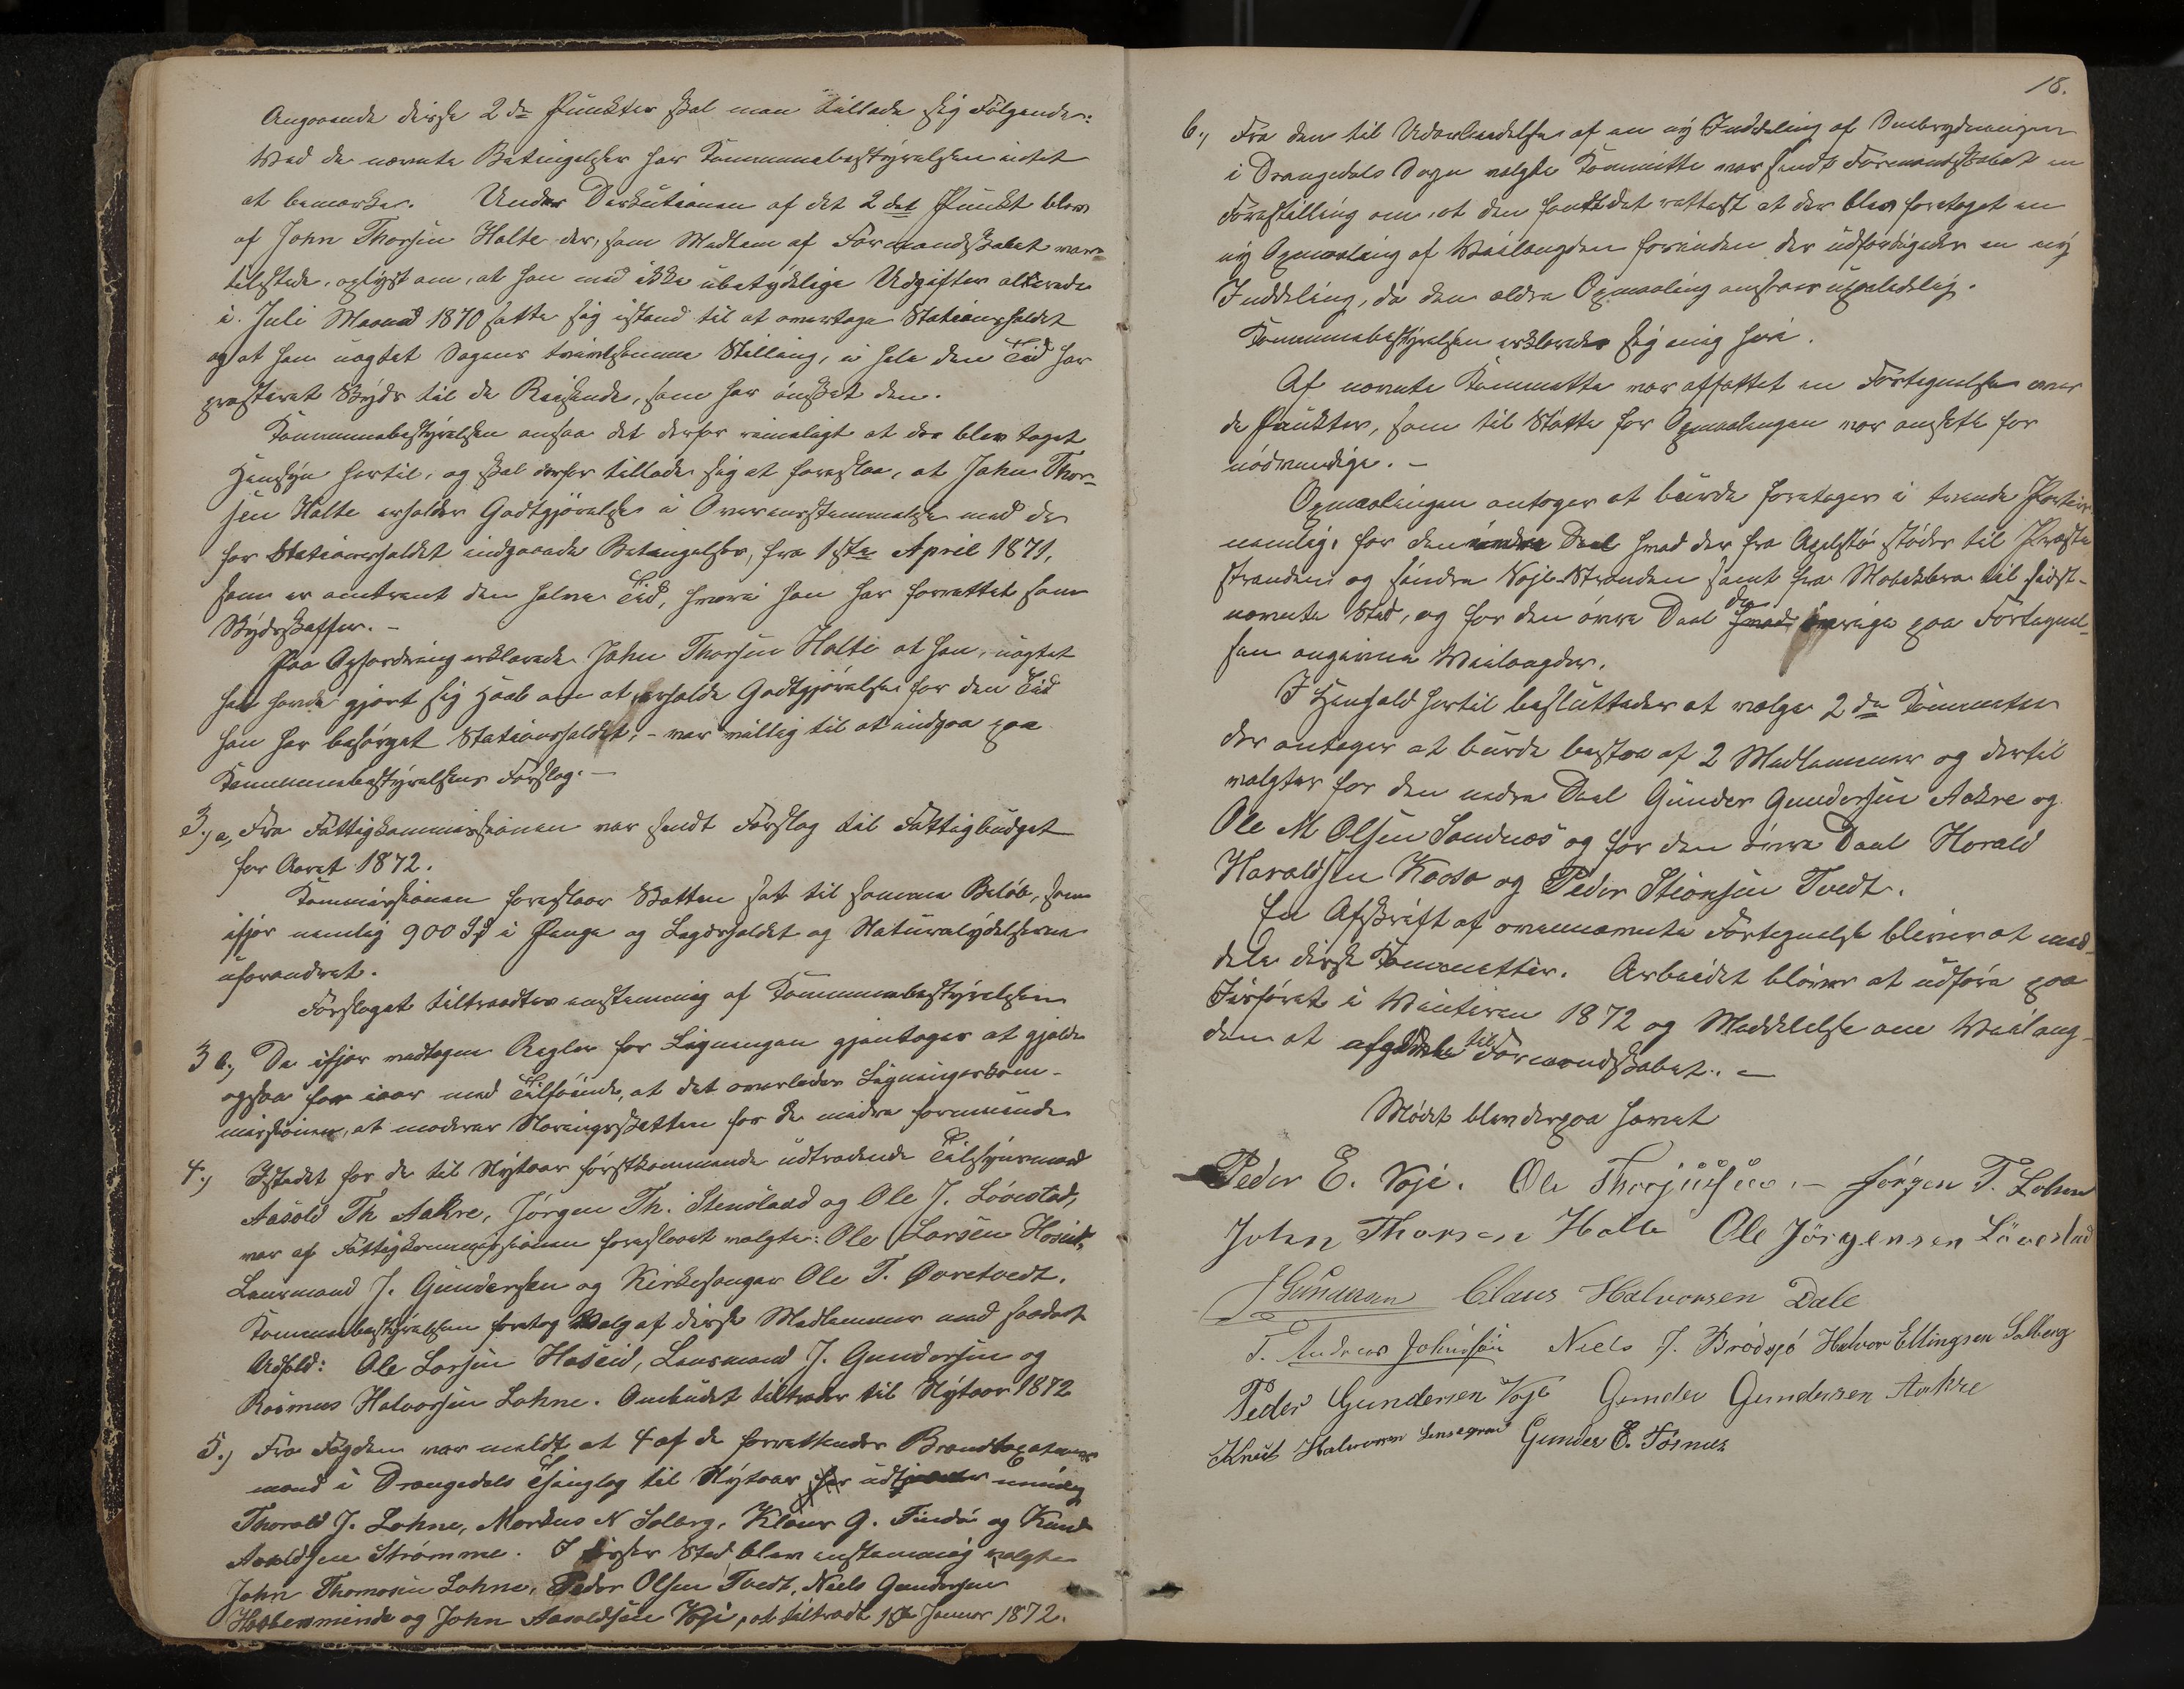 Angaaende disse 2de Punkter skal man tillade sig Følgende:
Ved de nævnte Betingelser har Kommunebestyrelsen intet
at bemærke. Under Diskutionen af det 2det Punkt blev
af John Thorsen Holte der, som Medlem af Formandskabet var
tilstede, oplyst om, at han med ikke ubetydelige Udgifter allerede
i Juli Maaned 1870 satte sig istand til at overtage Stationsholdet
og at han uagtet Sagens tvivlsomme Stilling, i hele den Tid har
præsteret Skyds til de Reisende, som har ønsket den.
Kommunebestyrelsen ansaa det derfor rimeligt at der blev taget
Hensyn hertil, og skal derfor tillade sig at foreslaa, at John Thor-
sen Holte erholder Godtgjørelse i Overensstemmelse med de
for Stationsholdet indgaaede Betingelser, fra 1ste April 1871,
som er omtrent den halve Tid, hvori han har forrettet som
Skydsskaffer. -
Paa Opfordring erklærede John Thorsen Holte at han, uagtet
han havde gjort sig Haab om at erholde Godtgjørelse for den Tid
han har besørget Stationsholdet, - var villig til at indgaa paa
Kommunebestyrelsens Forslag. -
3.) a, Fra Fattigkommissionen var sendt Forslag til Fattigbudget
for Aaret 1872.
Kommissionen foreslaar Skatten sat til samme Beløb, som
ifjor nemlig 900 Spd i Penge og Lægdsholdet og Naturalydelserne
uforandret.
Forslaget tiltraadtes enstemmig af Kommunebestyrelsen
3 b.) De ifjor vedtagne Regler for Ligningen gjentages at gjælde
ogsaa for iaar med Tilføiende, at det overlades Ligningskom-
missionen, at moderere Næringsskatten for de mindre formuende
4.) Istedet for de til Nytaar førstkommende udtrædende Tilsynsmænd
Aasold Th Aakre, Jørgen Th. Stensland og Ole J. Løvestad,
var af Fattigkommissionen foreslaaet valgte: Ole Larsen Hoseid,
Lensmand J. Gundersen og Kirkesanger Ole T. Øvretvedt.
Kommunebestyrelsen foretog Valg af disse Medlemmer med saadant
Udfald: Ole Larsen Hoseid, Lensmand J. Gundersen og
Rasmus Halvorsen Lohne. Ombudet tiltræder til Nytaar 1872
5.) Fra Fogden var meldt at 4 af de forrettende Brandtaxations
mænd i Drangedals Thinglag til Nytaar har udtjent nemlig
Thorald J. Lohne, Markus N Solberg, Klaus G. Findø og Knud
Aasoldsen Strømme. I disses Sted blev enstemmig valgte
John Thomesen Lohne, Peder Olsen Tvedt, Niels Gundersen
og John Aasoldsen Voje, at tiltræde 1ste Januar 1872.
18.
6.) Fra den til Udarbeidelse af en ny Inddeling af
i Drangedals Sogn valgte Kommitte var sendt Formandskabet en
Forestilling om, at den fandt det rettest at der blev foretaget en
ny Opmaaling af Veilængden forinden der udfærdigedes en ny
Inddeling, da den ældre Opmaaling ansaaes upaalidelig.
Kommunebestyrelsen erklærede sig enig heri.
Af nævnte Kommitte var affattet en Fortegnelse over
de Punkter, som til Støtte for Opmaalingen var anseet for
nødvendige. -
Opmaalingen antoges at burde foretages i tvende Partier
nemlig: for den nedre Deel hvad der fra støder til Præste
stranden og søndre Voje Stranden samt fra til sidst-
nævnte Sted, og for den øvre Deel de øvrige paa Fortegnel-
sen angivne Veilængder.
I Henhold hertil besluttedes at vælge 2de Kommiteer
der antages at burde bestaa af 2 Medlemmer og dertil
valgtes for den nedre Deel Gunder Gundersen Aakre og
Ole M Olsen Sandnæs og for den øvre Deel Harald
Haraldsen Kaasa og Peder Stiansen Tvedt.
En Afskrift af ovennævnte Fortegnelse bliver at med-
dele disse Kommitteer. Arbeidet bliver at udføre paa
Isføret i Vinteren 1872 og Meddelelse om Veilæng-
den at afgive til Formandskabet. -
Mødet blev derpaa hævet
Peder E. Voje. Ole Thorjussen. - Jørgen T. Lohne
John Thorsen Holte Ole Jörgensen Lövestad
JGundersen Claus Halvorsen Dale
T. Andreas Johnsen Niels J. Brödsjö Halvor Ellingsen Solberg
Peder Gundersen Voje Gunder Gundersen Aakre
Knut Halvorsen Gunder E. Fosnæs